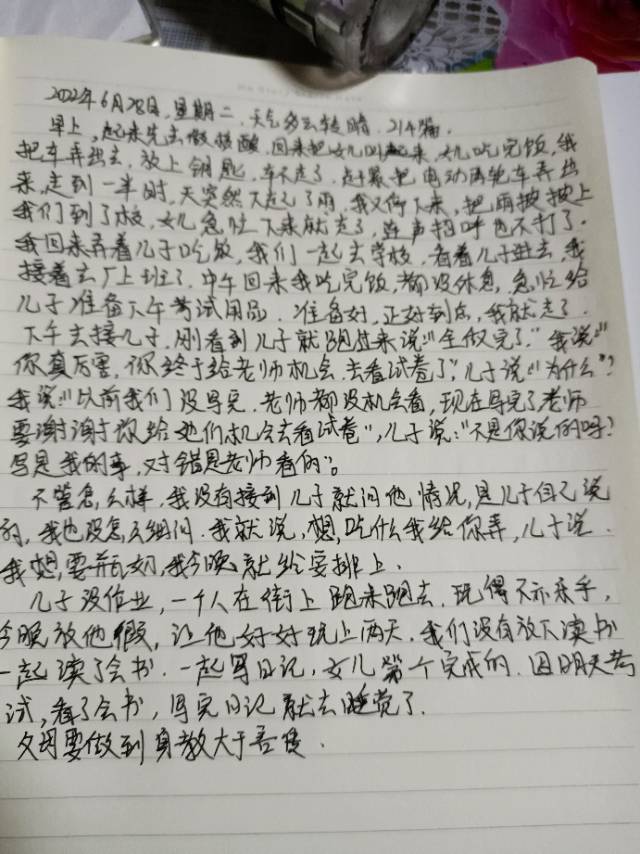 2022年6月28日,星期二,天气多云转晴,214篇.
早上,起来先去做核酸,回来把女儿叫起来,女儿吃完饭,我
把车弄出去,放上钥匙,车不走了,赶紧把电动两轮车弄出
来,走到一半时,天突然下起了雨,我又停下来,把雨披披上
我们到了校,女儿急忙下来就走了,连声招呼也不打了.
我回来弄着儿子吃饭,我们一起去学校,看着儿子进去,我
接着去厂上班了.中午回来我吃完饭,都没休息,急忙给
儿子准备下午考试用品.准备好,正好到点,我就走了.
下午去接儿子,刚看到儿子就跑过来说:“全做完了.”我说:“
你真厉害,你终于给老师机会,去看试卷了”,儿子说:“为什么”?
我说:“以前我们没写完,老师都没机会看,现在写完了老师
要谢谢你给她们机会去看试卷”,儿子说:“不是你说的吗?
写是我的事,对错是老师看的”。
不管怎么样,我没有接到儿子就问他情况,是儿子自己说
的,我也没怎么细问.我就说,想,吃什么我给你弄,儿子说.
我想,要瓶奶,我今晚就给安排上.
儿子没作业,一个人在街上跑来跑去,玩得不亦乐乎,
今晚放他假,让他好好玩上两天.我们没有放下读书
一起读了会书.一起写日记,女儿第一个完成的.因明天考
试,看了会书,写完日记就去睡觉了.
父母要做到身教大于言传.